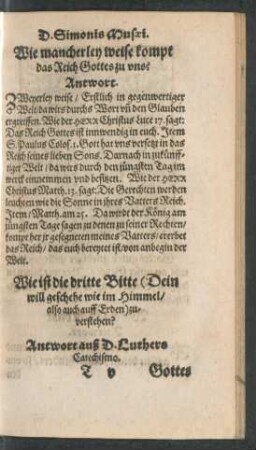 D. Simonis Musæi.
Wie mancherley weise kompt
das Reich Gottes zu vns?
Antwort.
ZWeyerley weise / Erstlich in gegenwertiger
Welt da wirs durchs Wort vñ den Glauben
ergreiffen. Wie der HERR Christus Luce 17. sagt:
Das Reich Gottes ist innwendig in euch. Item
S. Paulus Colos. 1. Gott hat vns versetzt in das
Reich seines lieben Sons. Darnach in zukünff-
tiger Welt / da wirs durch den jüngsten Tag im
werck einnemmen vnd besitzen. Wie der HERR
Christus Matth. 13. sagt: Die Gerechten werden
leuchten wie die Sonne in ihres Vatters Reich.
Item / Matth. am 25. Da wirdt der König am
jüngsten Tage sagen zu denen zu seiner Rechten /
kompt her jr gesegneten meines Vatters / ererbet
das Reich / das euch bereytet ist / von anbegin der
Welt.
Wie ist die dritte Bitte (Dein
will geschehe wie im Himmel /
also auch auff Erden) zu-
verstehen?
Antwort auß D. Luthers
Catechismo.
T v Gottes